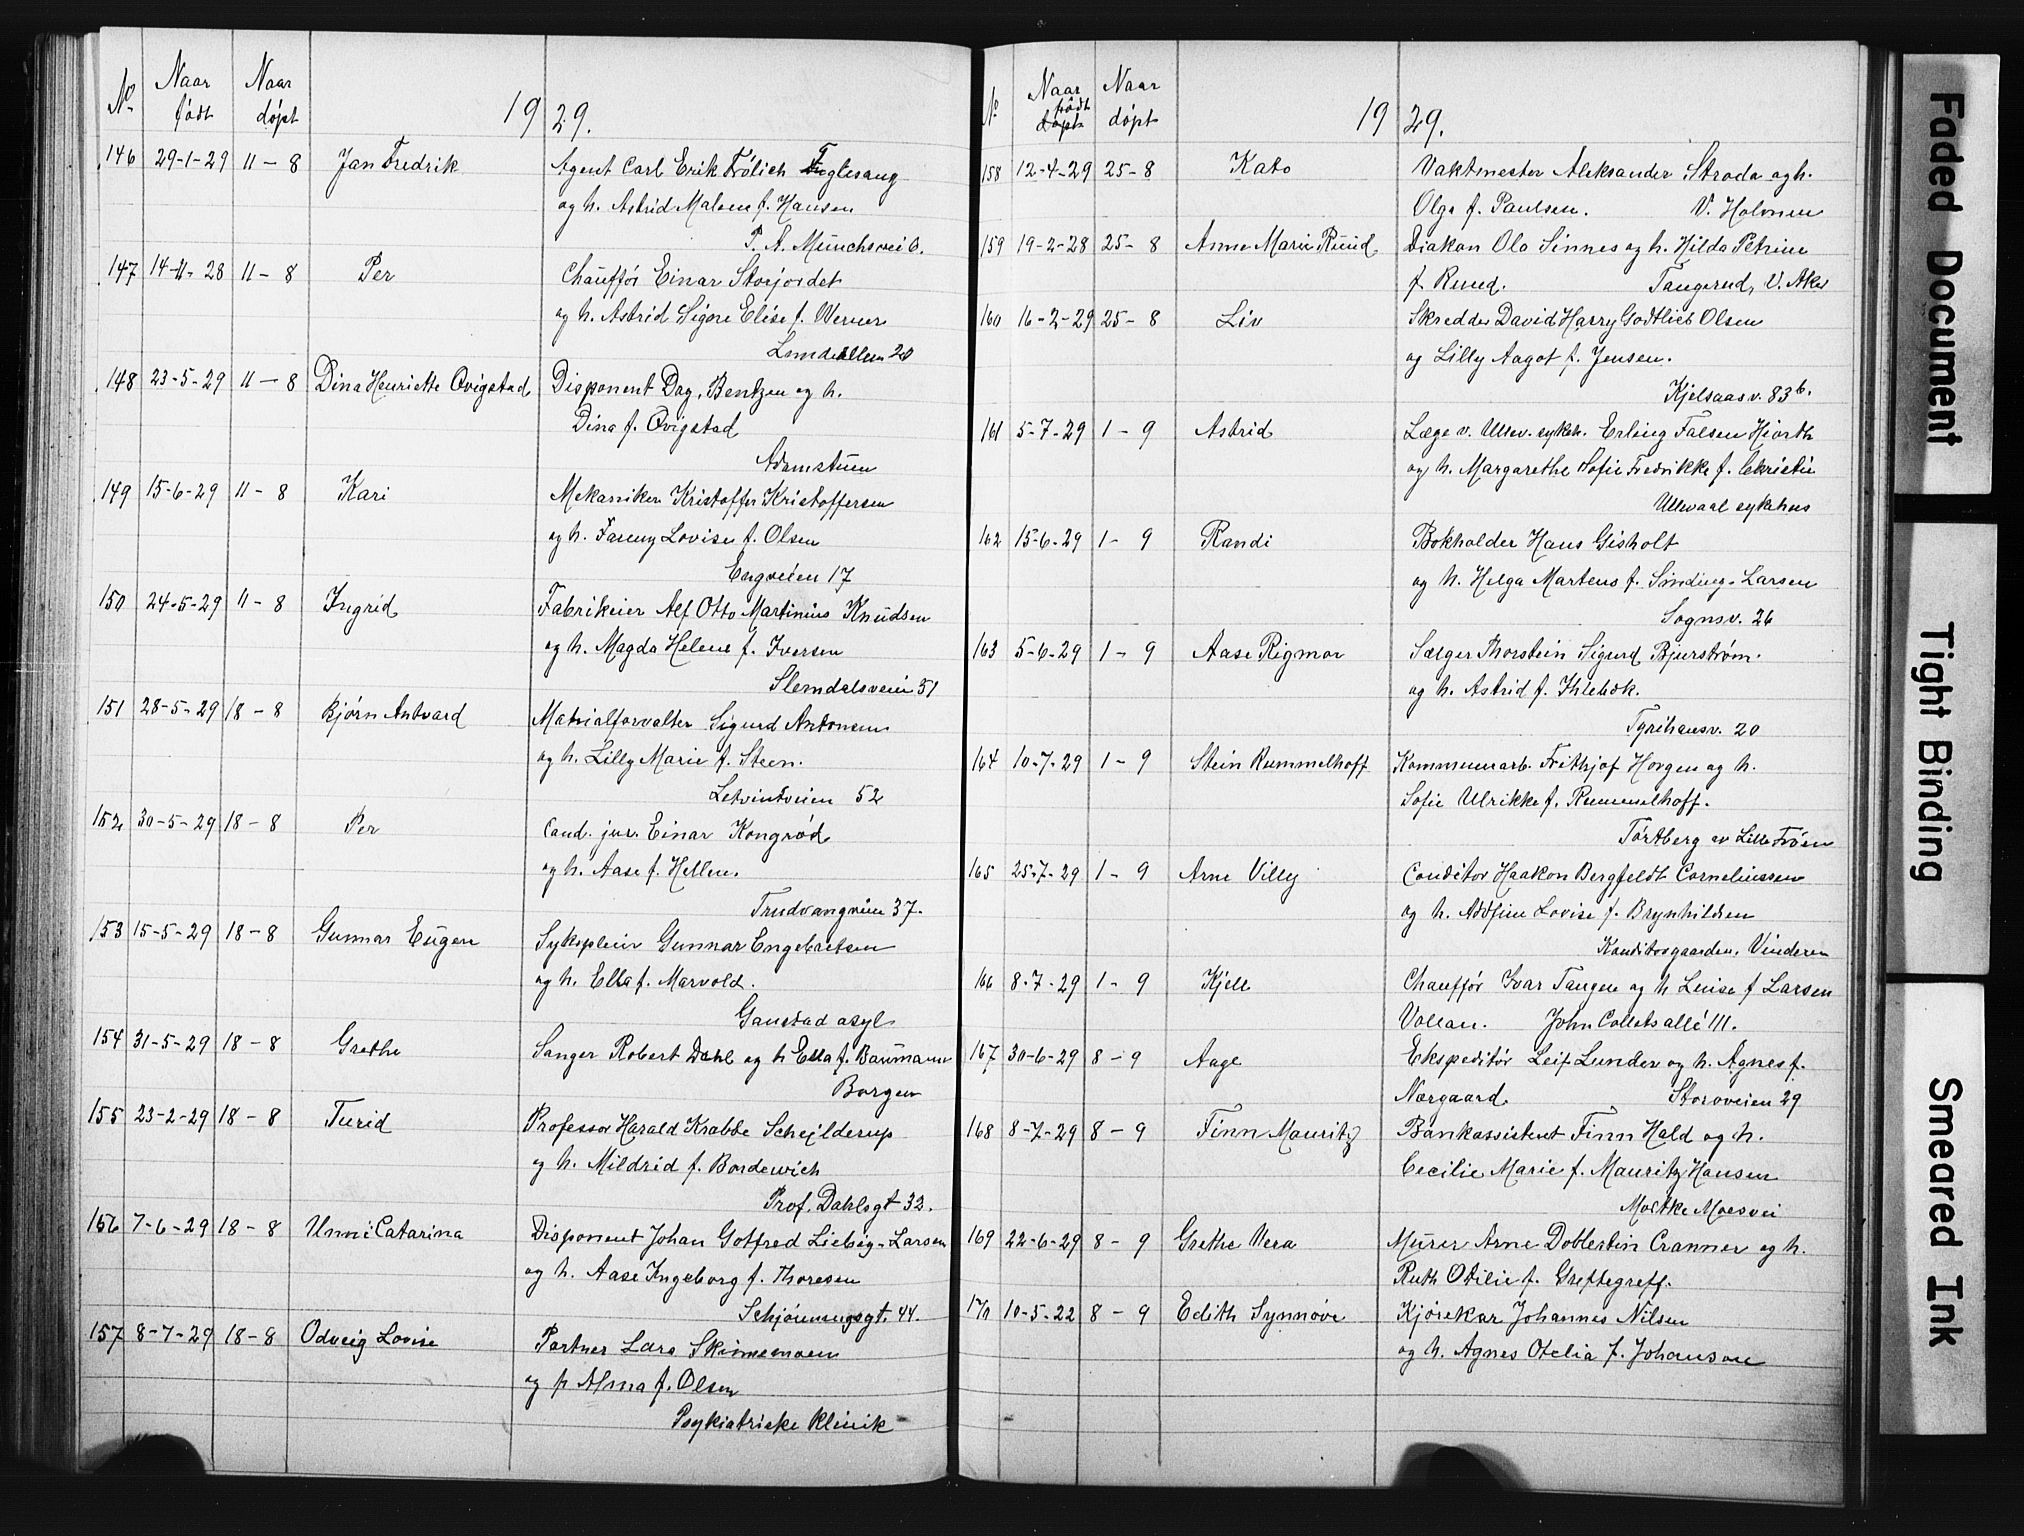 No Naar født Naar døpt 1929.
146 29-1-29 11-8 Jan Fredrik Agent Carl Erik Frölich Fuglesang
og h. Astrid Malene f. Hansen
P. A. Munchsvei 6.
147 14-11-28 11-8 Per Chauffør Einar Storjordet
og h. Astrid Signe Elise f. Werner
Lindealleen 20
148 23-5-29 11-8 Dina Henriette Qvigstad Disponent Dag. Bentzen og h.
Dina f. Qvigstad
Adamstuen
149 15-6-29 11-8 Kari Mekaniker Kristoffer Kristoffersen
og h. Fanny Lovise f. Olsen
Engveien 17
150 24-5-29 11-8 Ingrid Fabrikeier Alf Otto Martinius Knudsen
og h. Magda Helene f. Iversen
Slemdalsveien 51
151 28-5-29 18-8 Bjørn Antvard Matrialforvalter Sigurd Antonsen
og h. Lilly Marie f. Steen.
52
152 30-5-29 18-8 Per Cand. jur. Einar Kongrød
og h. Aase f. Hellen.
Trudvangveien 37.
153 15-5-29 18-8 Gunnar Eugen Sykepleier Gunnar Engebretsen
og h. Ella f. Marvold.
Gaustad asyl
154 31-5-29 18-8 Grethe Sanger Robert Dahl og h Ella f. Baumann
Borgen
155 23-2-29 18-8 Turid Professor Harald Krabbe Schjelderup
og h. Mildrid f. Bordewich
Prof. Dahlsgt 32.
156 7-6-29 18-8 Unni Catarina Disponent Johan Gotfred Liebig-Larsen
og h. Aase Ingeborg f. Thoresen
Schjøningsgt. 44.
157 8-7-29 18-8 Odveig Lovise Portner Lars Skinnemoen
og h Alma f. Olsen
Psykiatriske Klinik
No Naar født døpt Naar døpt 1929.
158 12-4-29 25-8 Kato Vaktmester Aleksander Stroda og h.
Olga f. Paulsen. V. Holmen
159 19-2-28 25-8 Anne Marie Ruud Diakon Ola Sinnes og h. Hilda Petrine
f. Ruud. Tangerud, V. Aker
160 16-2-29 25-8 Liv Skredder David Harry Godtlieb Olsen
og Lilly Aagot f. Jensen.
Kjelsaasv. 83b.
161 5-7-29 1-9 Astrid Læge v. Ullev. sykeh. Erling Falsen Hjorth
og h. Margarethe Sofie Fredrikke f. Christie
Ullevaal sykehus
162 15-6-29 1-9 Randi Bokholder Hans Gisholt
og h. Helga Martens f. Sinding-Larsen
Sognsv. 26
163 5-6-29 1-9 Aase Rigmor Sælger Thorstein Sigurd Bjurstrøm.
og h. Astrid f. Ihlebæk.
Tyrihansv. 20
164 10-7-29 1-9 Stein Rummelhoff Kommunearb. Frithjof Horgen og h.
Sofie Ulrikke f. Rummelhoff.
Tørtberg av Lille Frøen
165 25-7-29 1-9 Arne Villy Conditor Haakon Bergfeldt Corneliussen
og h. Adofine Lovise f. Brynhildsen
Konditorgaarden, Vinderen
166 8-7-29 1-9 Kjell Chauffør Ivar Tangen og h Luise f Larsen
Vollan. John Collets allé 111.
167 30-6-29 8-9 Aage Ekspeditør Leif Lunder og h. Agnes f.
Nørgaard. Storoveien 29
168 8-7-29 8-9 Finn Mauritz Bankassistent Finn Hald og h.
Cecilie Marie f. Mauritz Hansen
Moltke Moesvei
169 22-6-29 8-9 Grethe Vera Murer Arne Doblestin Cranner og h.
Ruth Otilie f. Greftegreff.
170 10-5-22 8-9 Edith Synnøve Kjørekar Johannes Nilsen
og h. Agnes Otelia f. Johanson
Faded Document
Tight Binding
Smeared Ink